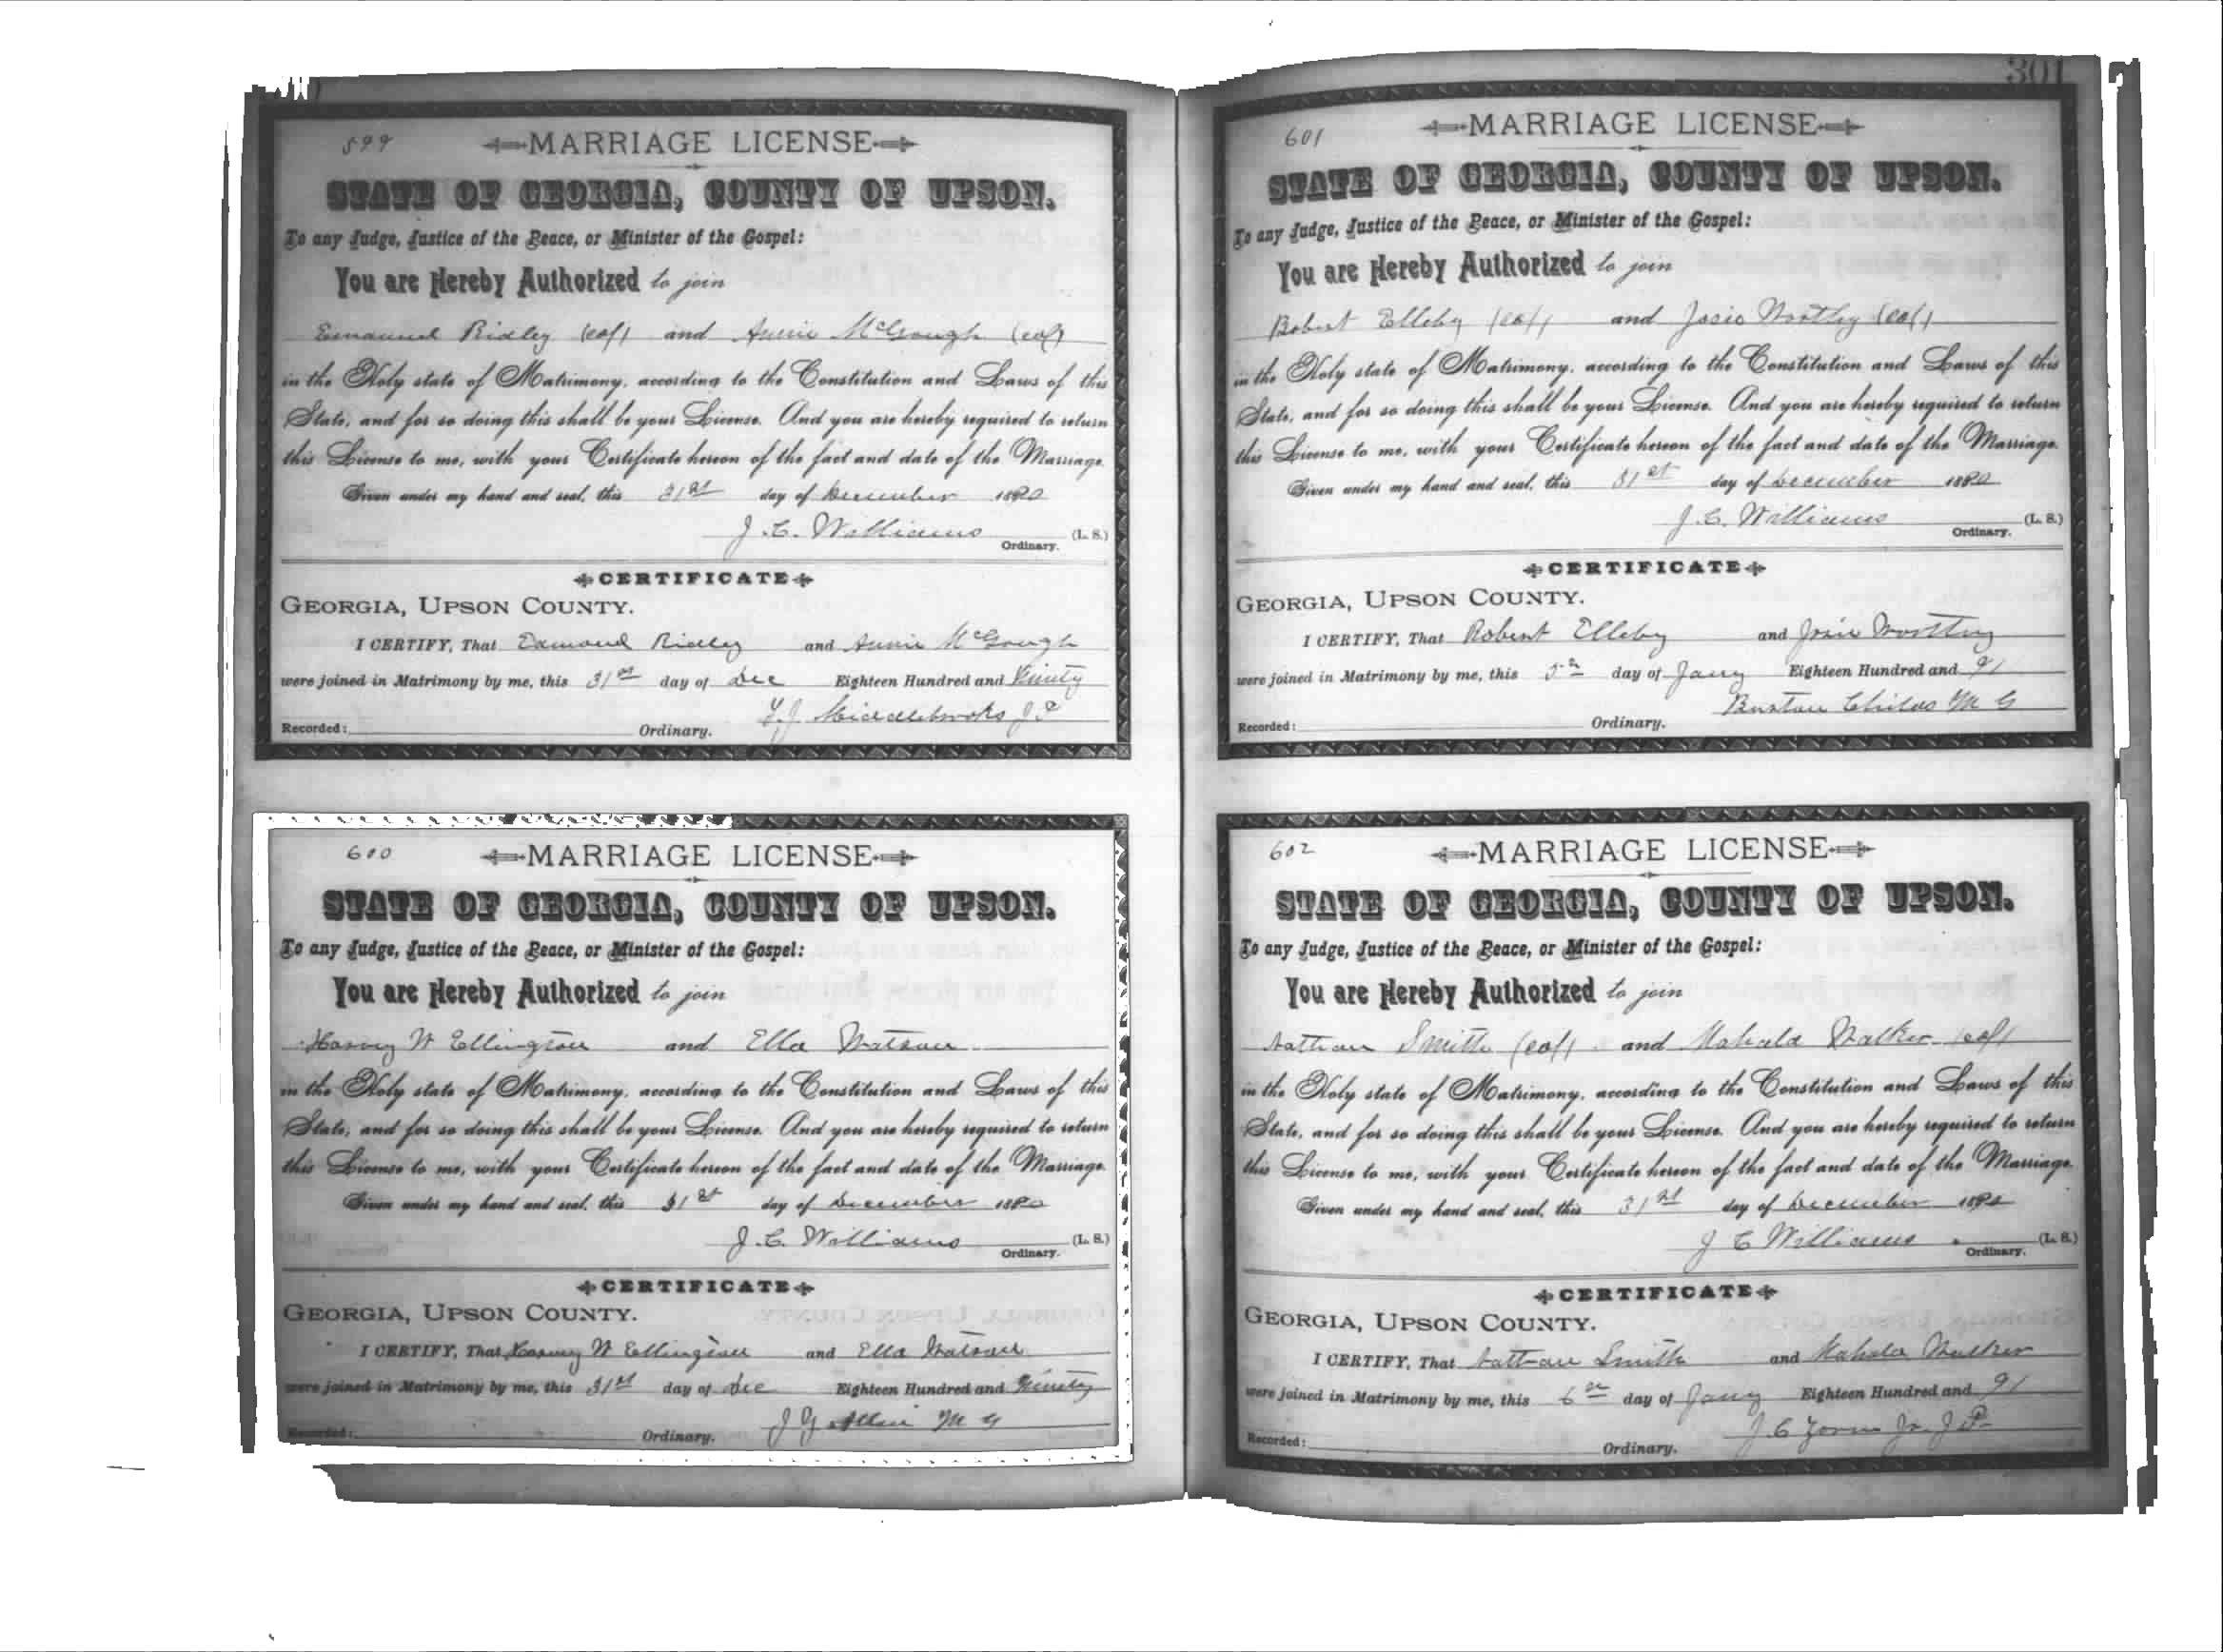 599
MARRIAGE LICENSE
STATE OF GEORGIA, COUNTY OF UPSON.
To any Judge, Justice of the Peace, or Minister of the Gospel:
You are Hereby Authorized to join
Emanuel Ridley (col) and Annie McGough (col)
in the Holy state of Matrimony, according to the Constitution and Laws of this
State, and for so doing this shall be your License. And you are hereby required to return
this License to me, with your Certificate hereon of the fact and date of the Marriage.
Given under my hand and seal, this 31st day of December 1890
J. C. Williams (L. S.)
Ordinary.
CERTIFICATE
GEORGIA, UPSON COUNTY.
I CERTIFY, That Edmond Ridley and Annie McGough
were joined in Matrimony by me, this 31st day of Dec Eighteen Hundred and Ninety
Middlebrooks J P
Recorded: Ordinary.
600
MARRIAGE LICENSE
STATE OF GEORGIA, COUNTY OF UPSON.
To any Judge, Justice of the Peace, or Minister of the Gospel:
You are Hereby Authorized to join
Harvey W Ellington and Ella Watson
in the Holy state of Matrimony, according to the Constitution and Laws of this
State, and for so doing this shall be your License. And you are hereby required to return
this License to me, with your Certificate hereon of the fact and date of the Marriage.
Given under my hand and seal, this 31st day of December 1890
J. C. Williams (L. S.)
Ordinary.
CERTIFICATE
GEORGIA, UPSON COUNTY.
I CERTIFY, That Harvey W Ellington and Ella Watson
were joined in Matrimony by me, this 31st day of Dec Eighteen Hundred and Ninety
Allen M G
Recorded: Ordinary.
301
601
MARRIAGE LICENSE
STATE OF GEORGIA, COUNTY OF UPSON.
To any Judge, Justice of the Peace, or Minister of the Gospel:
You are Hereby Authorized to join
Robert Elleby (col) and Josie Worthy (col)
in the Holy state of Matrimony, according to the Constitution and Laws of this
State, and for so doing this shall be your License. And you are hereby required to return
this License to me, with your Certificate hereon of the fact and date of the Marriage.
Given under my hand and seal, this 31st day of December 1890
J. C. Williams (L. S.)
Ordinary.
CERTIFICATE
GEORGIA, UPSON COUNTY.
I CERTIFY, That Robert Elleby and Josie Worthy
were joined in Matrimony by me, this 5th day of Jany Eighteen Hundred and 91
Burton Childs M G
Recorded: Ordinary.
602
MARRIAGE LICENSE
STATE OF GEORGIA, COUNTY OF UPSON.
To any Judge, Justice of the Peace, or Minister of the Gospel:
You are Hereby Authorized to join
Nathan Smith (col) and Mahala Walker (col)
in the Holy state of Matrimony, according to the Constitution and Laws of this
State, and for so doing this shall be your License. And you are hereby required to return
this License to me, with your Certificate hereon of the fact and date of the Marriage.
Given under my hand and seal, this 31st day of December 1890
J C Williams (L. S.)
Ordinary.
CERTIFICATE
GEORGIA, UPSON COUNTY.
I CERTIFY, That Nathan Smith and Mahala Walker
were joined in Matrimony by me, this 6th day of Jany Eighteen Hundred and 91
J C Zorn Jr. J P
Recorded: Ordinary.